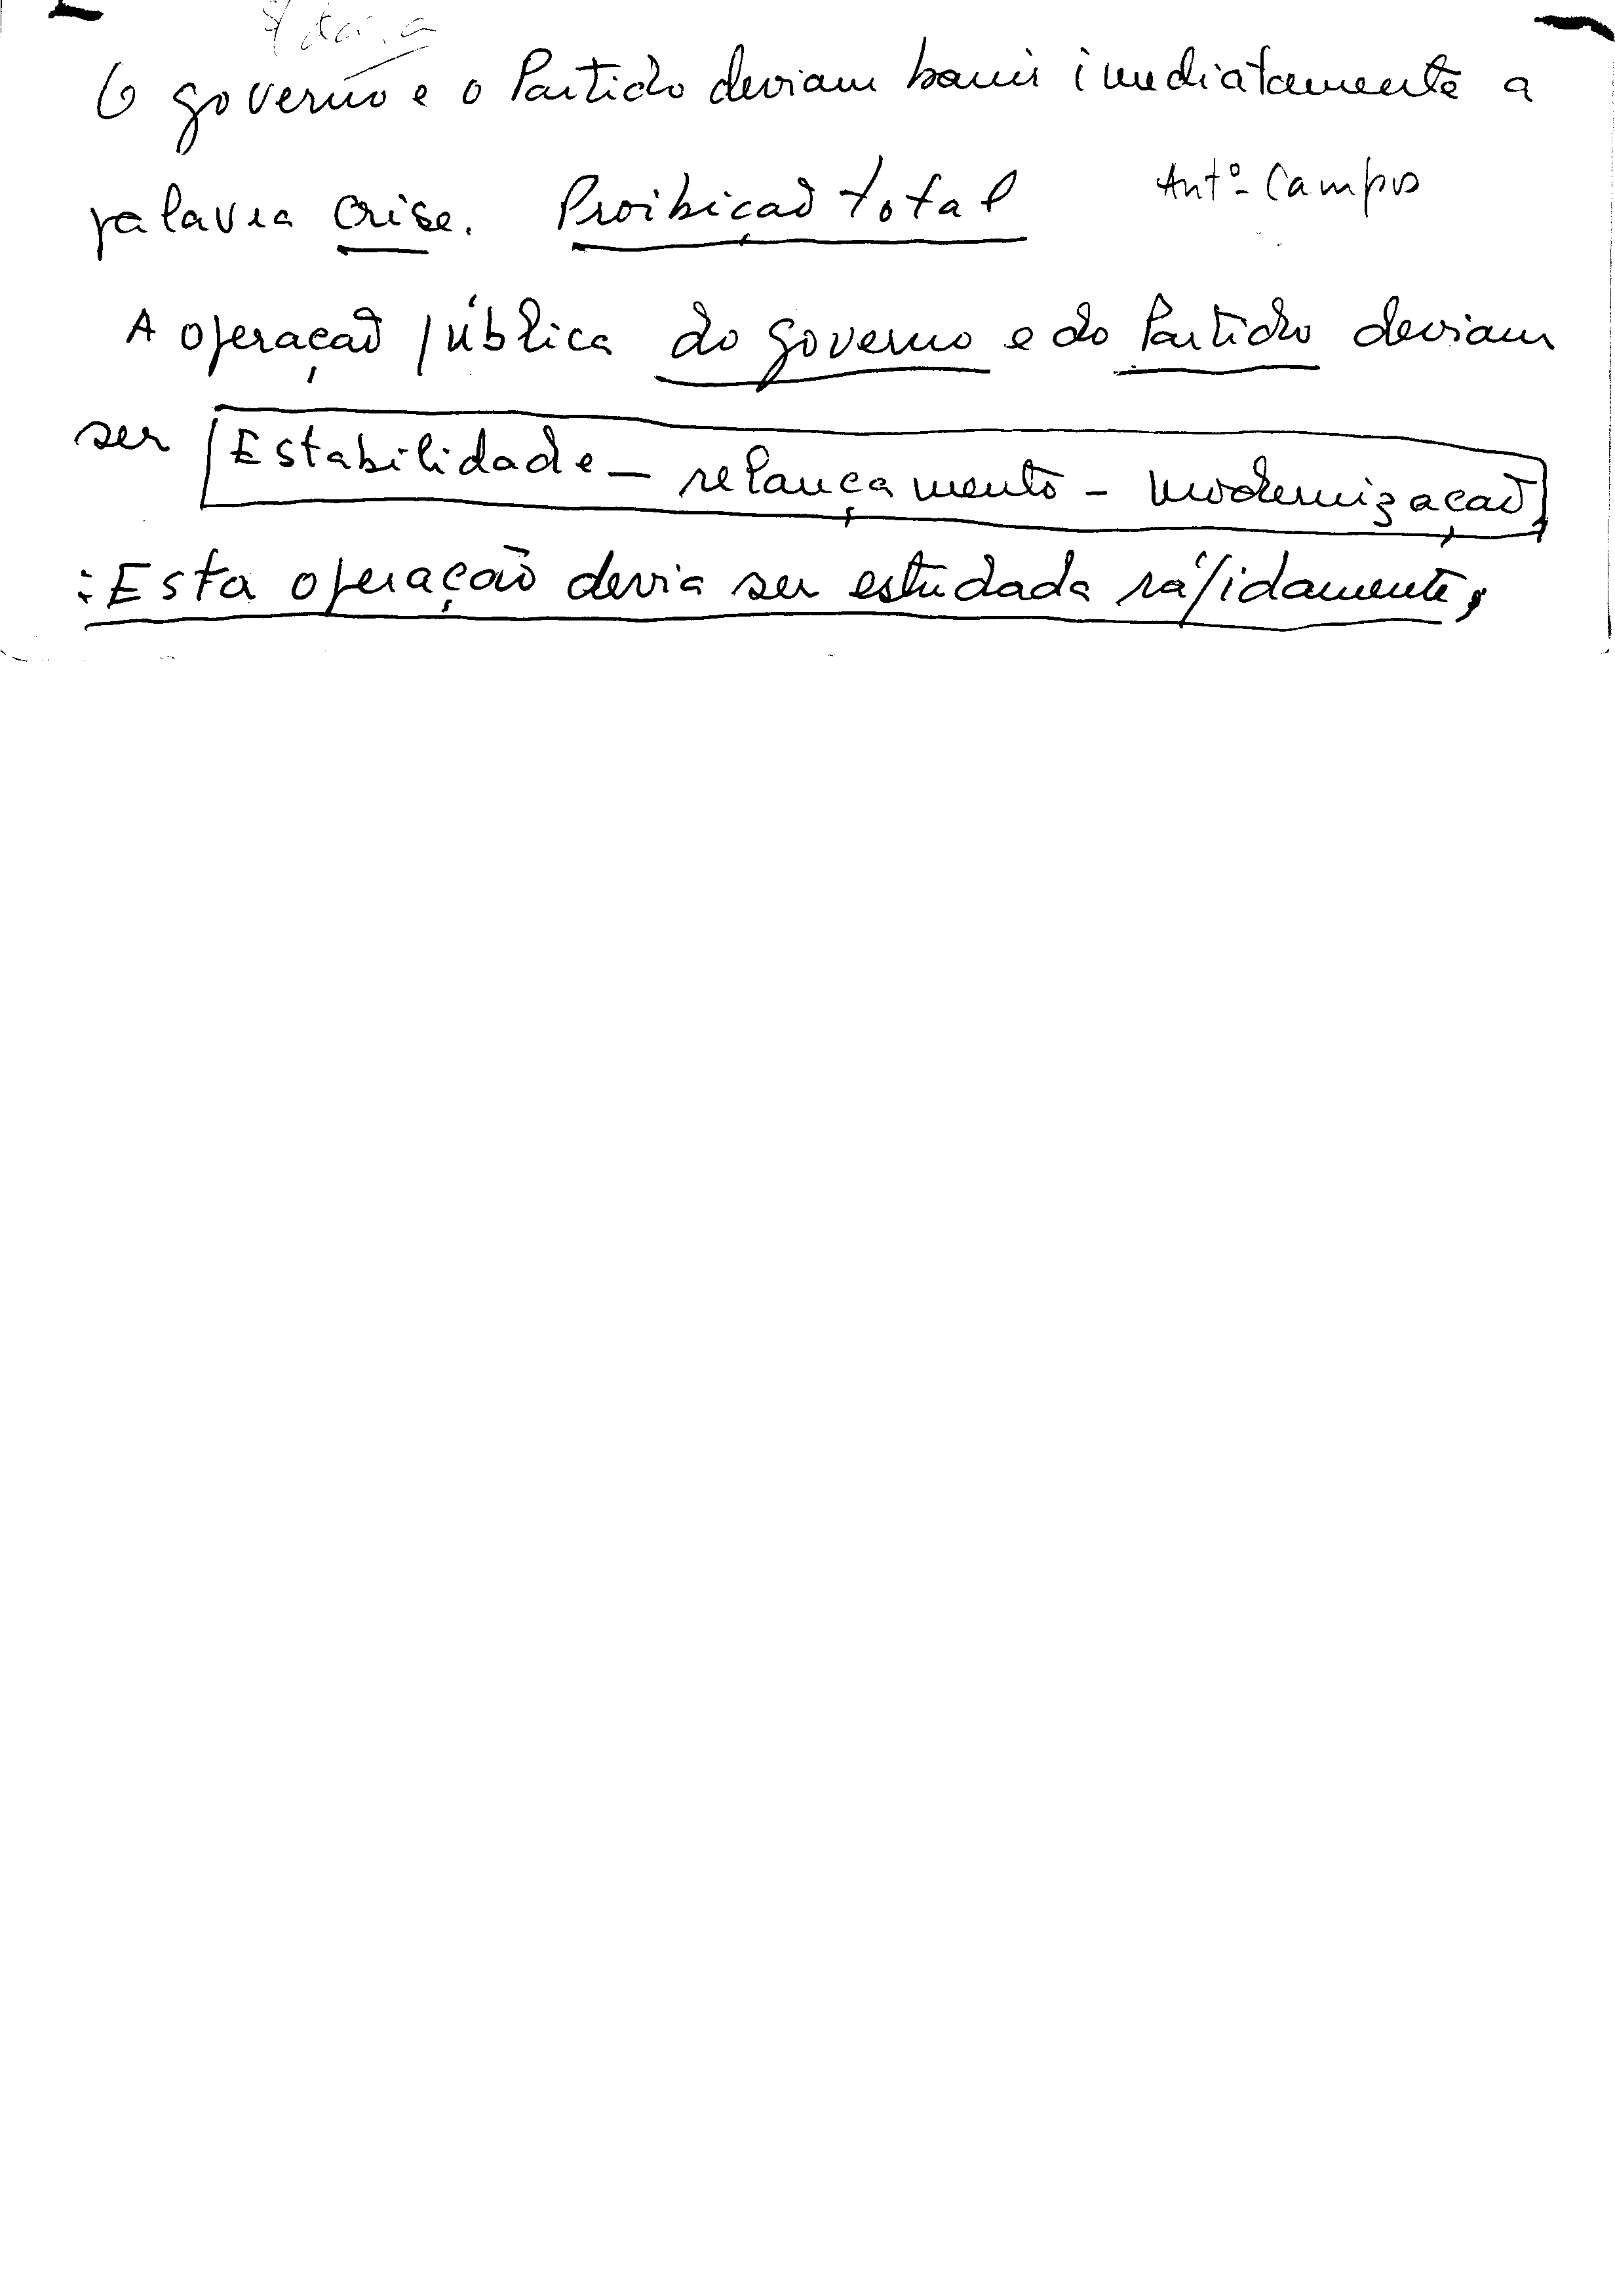 O governo e o Partido deviam banir imediatamente a
palavra crise. Proibição total Antº Campos
A operação pública do governo e do Partido deviam
ser Estabilidade - relançamento - modernização
: Esta operação devia ser estudada rápidamente,